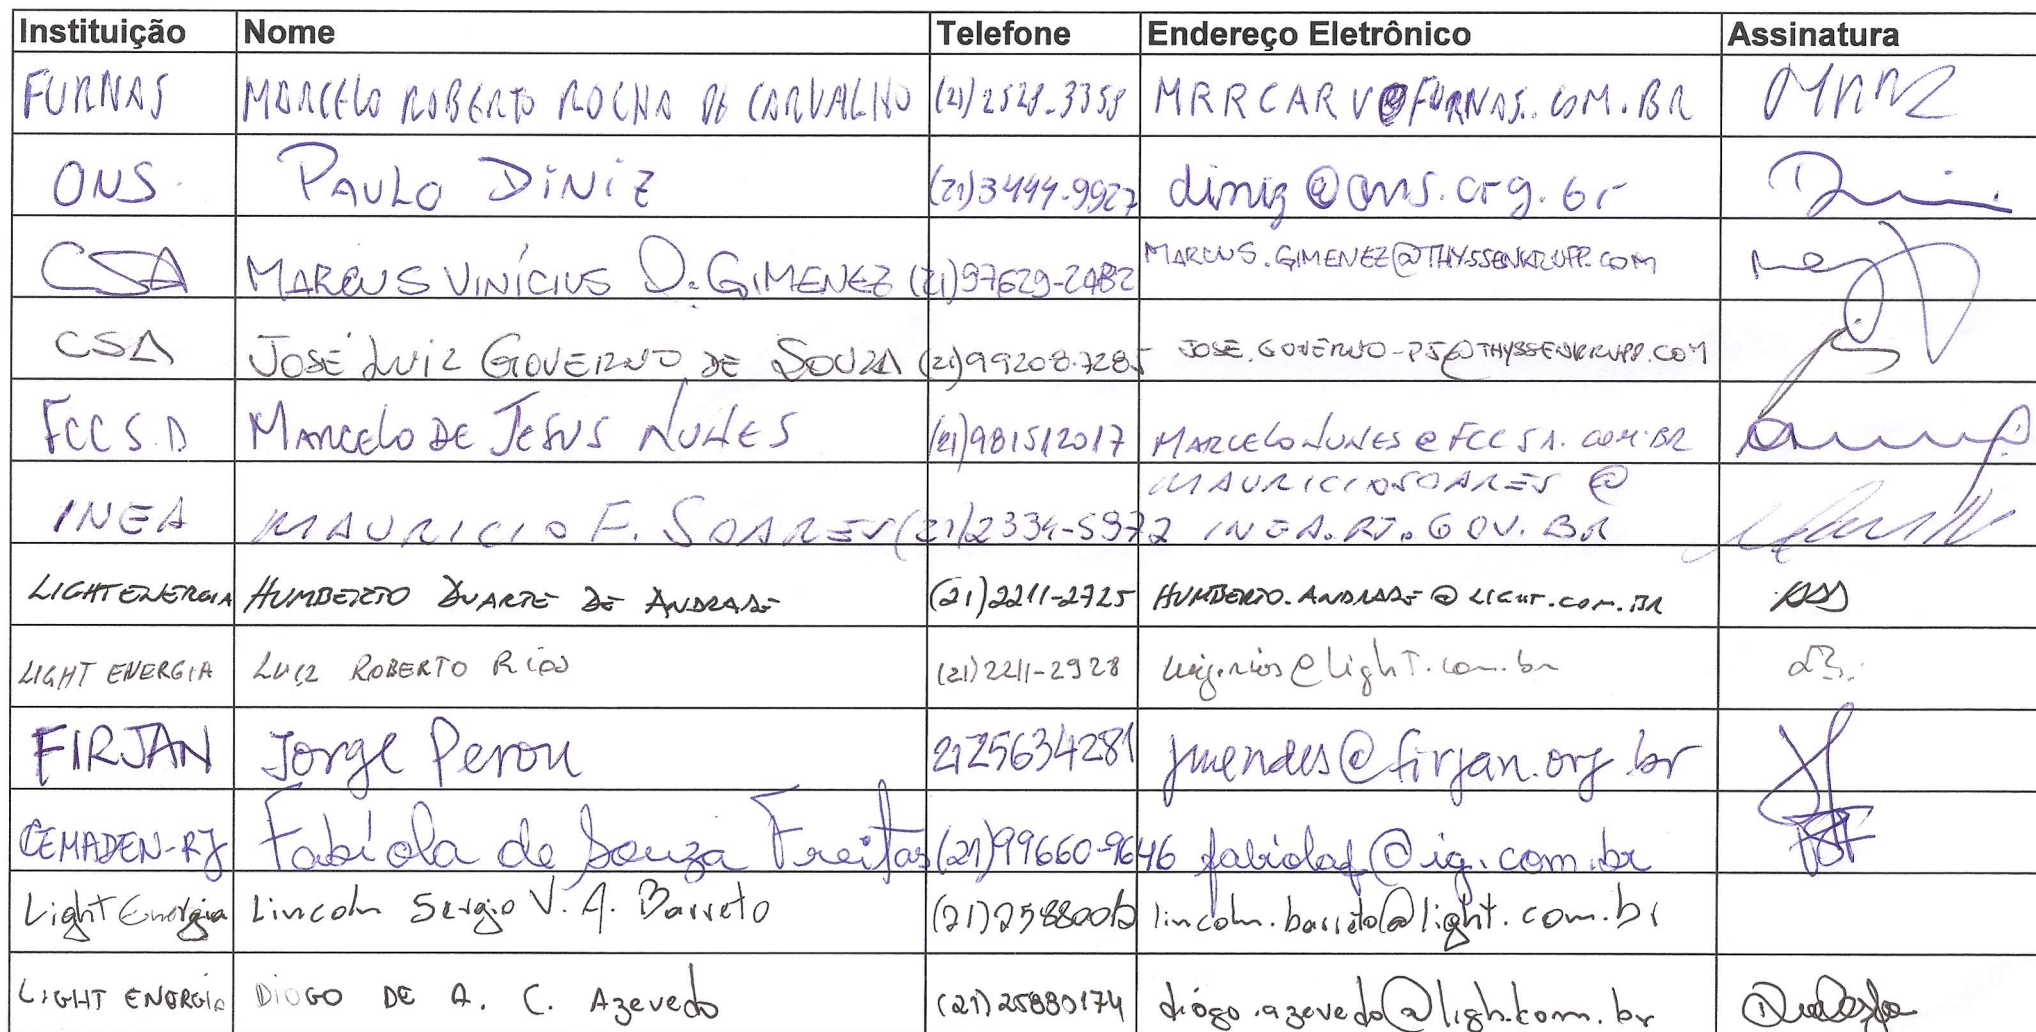 Instituição Nome Telefone Endereço Eletrônico Assinatura
FURNAS MARCELO ROBERTO ROCHA DE CARVALHO (21)2528-3358 MRRCARV@FURNAS.COM.BR
ONS PAULO DINIZ (21)3444-9927 diniz@ons.org.br
CSA MARCUS VINÍCIUS D. GIMENEZ (21)97629-2482 MARCUS.GIMENEZ@THYSSENKRUPP.COM
CSA JOSÉ LUIZ GOVERNO DE SOUZA (21)99208-7285 JOSE.GOVERNO-PJ@THYSSENKRUPP.COM
FCC S.A MARCELO DE JESUS NUNES (21)981512017 MARCELONUNES@FCCSA.COM.BR
INEA MAURICIO F. SOARES (21)2334-5972 MAURICIOSOARES@
INEA.RJ.GOV.BR
LIGHT ENERGIA HUMBERTO DUARTE DE ANDRADE (21)2211-2725 HUMBERTO.ANDRADE@LIGHT.COM.BR
LIGHT ENERGIA LUIZ ROBERTO RIOS (21)2211-2928 luiz.rios@light.com.br
FIRJAN Jorge Peron 2125634281 jmendes@firjan.org.br
CEMADEN-RJ Fabíola de Souza Freitas (21)99660-9646 fabiolaf@ig.com.br
Light Energia Lincoln Sergio V. A. Barreto lincoln.barreto@light.com.br
LIGHT ENERGIA DIOGO DE A. C. Azevedo (21)25880174 diogo.azevedo@light.com.br